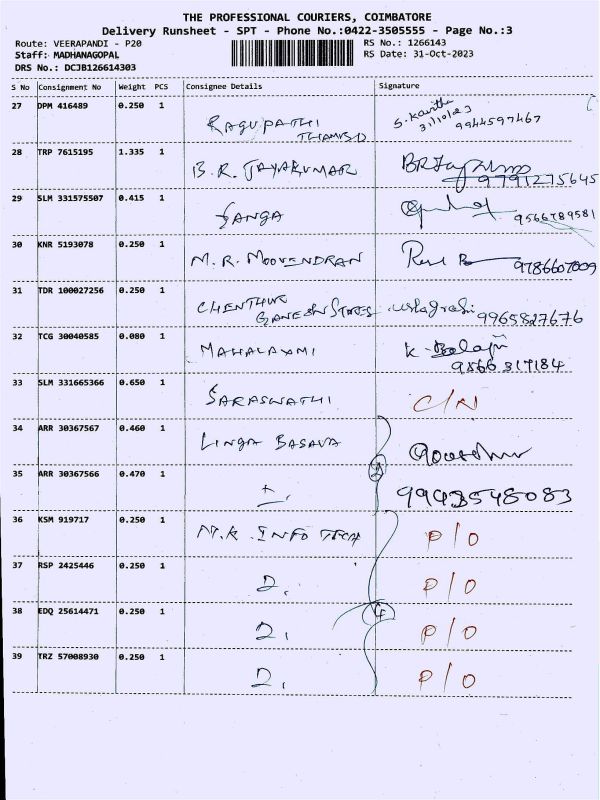 THE PROFESSIONAL COURIERS, COIMBATORE
Delivery Runsheet - SPT - Phone No.:0422-3505555 - Page No.:3
Route: VEERAPANDI - P20 RS No.: 1266143
Staff: MADHANAGOPAL RS Date: 31-Oct-2023
DRS No.: DCJB126614303
S No Consignment No Weight PCS Consignee Details Signature
27 DPM 416489 0.250 1 RAGUPATHI S. Kavitha
31/10/23
9944597467
28 TRP 7615195 1.335 1 B.R. JAYAKUMAR
9791275645
29 SLM 331575507 0.415 1 GANGA
9566789581
30 KNR 5193078 0.250 1 M.R. MOOVENDRAN
9786607009
31 TDR 100027256 0.250 1 CHENTHUR
GANESH STORES 9965827676
32 TCG 30040585 0.080 1 MAHALAXMI K. Balaji
9566317184
33 SLM 331665366 0.650 1 SARASWATHI C/N
34 ARR 30367567 0.460 1 LINGA BASAVA
2
35 ARR 30367566 0.470 1 9943548083
36 KSM 919717 0.250 1 M.K. INFO TECH P/O
37 RSP 2425446 0.250 1 2. P/O
4
38 EDQ 25614471 0.250 1 2. P/O
39 TRZ 57008930 0.250 1 2. P/O